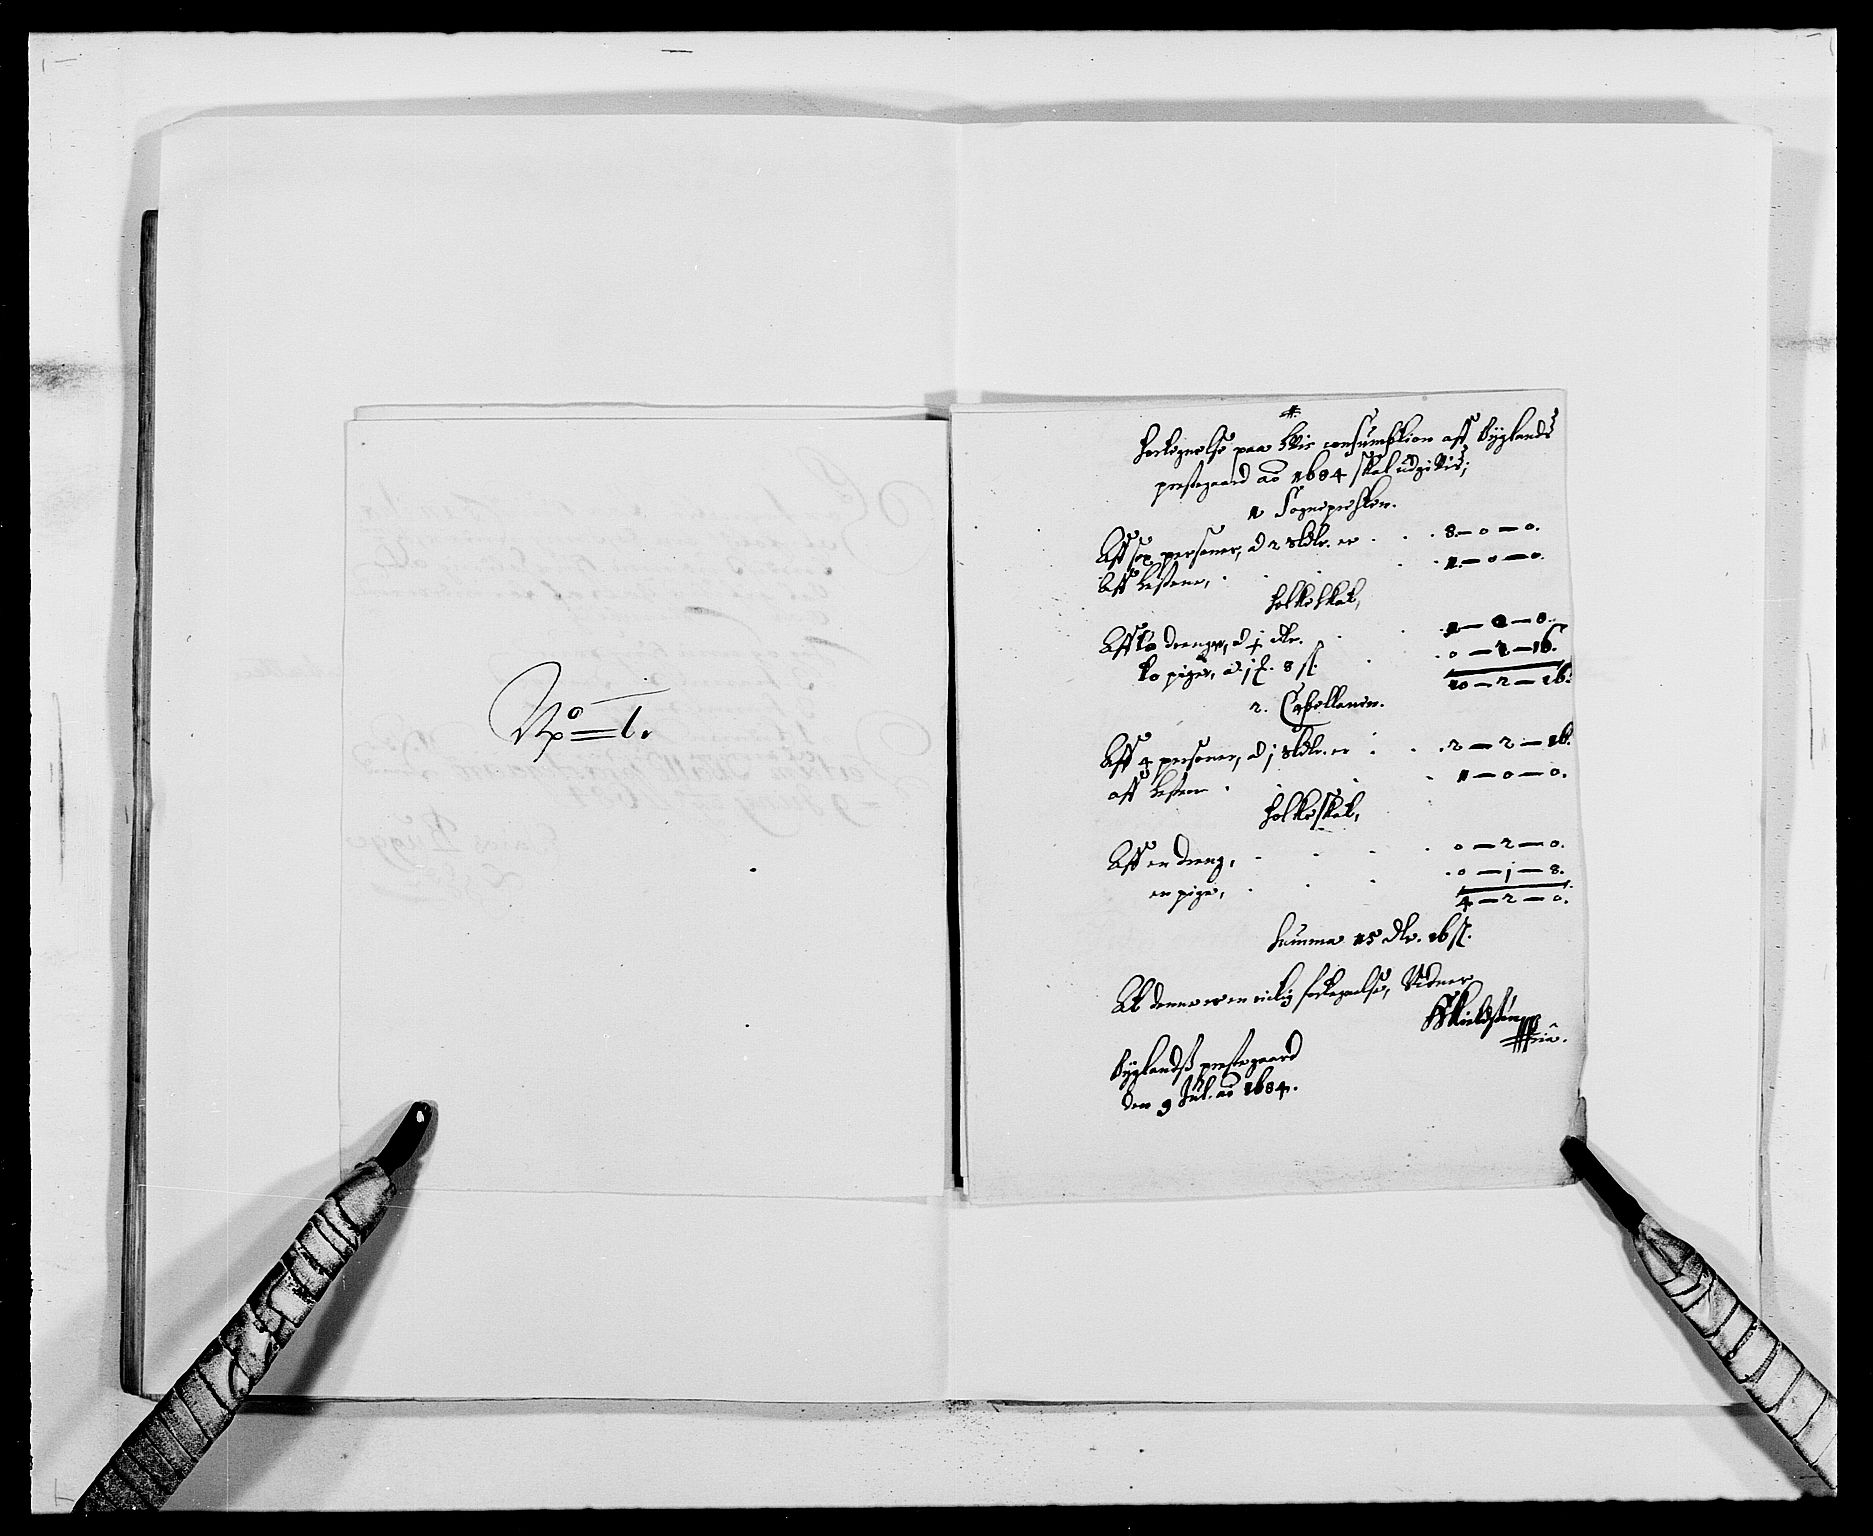 No 1.
Fortegnelse paa hvis consumption aff Byglands
prestegaard ao 1684 skal udgives;
1 Sognepresten.
Aff sex personer, a 2 rdlr. er . . . 8 – 0 – 0.
Aff hestene, . . . 1 – 0 – 0.
Folkeskat,
Aff to drenge, a ½ dlr. . . . 1 – 0 – 0.
to piger, a j ß. 8 sk. . . 0 – 2 – 16.
10 – 2 – 16.
2. Capellanen.
Aff 4 personer, a j rdlr. er . . . 2 – 2 – 16.
aff hesten . . . 1 – 0 – 0.
Folkeskat,
Aff en dreng, . . . 0 – 2 – 0.
en pige, . . . 0 – j – 8.
4 – 2 – 0.
Summa 15 dlr. 16 sk.
At denne er en rictig fortegnelse, vidner
Byglands prestegaard
den 9 Jul. ao 1684.